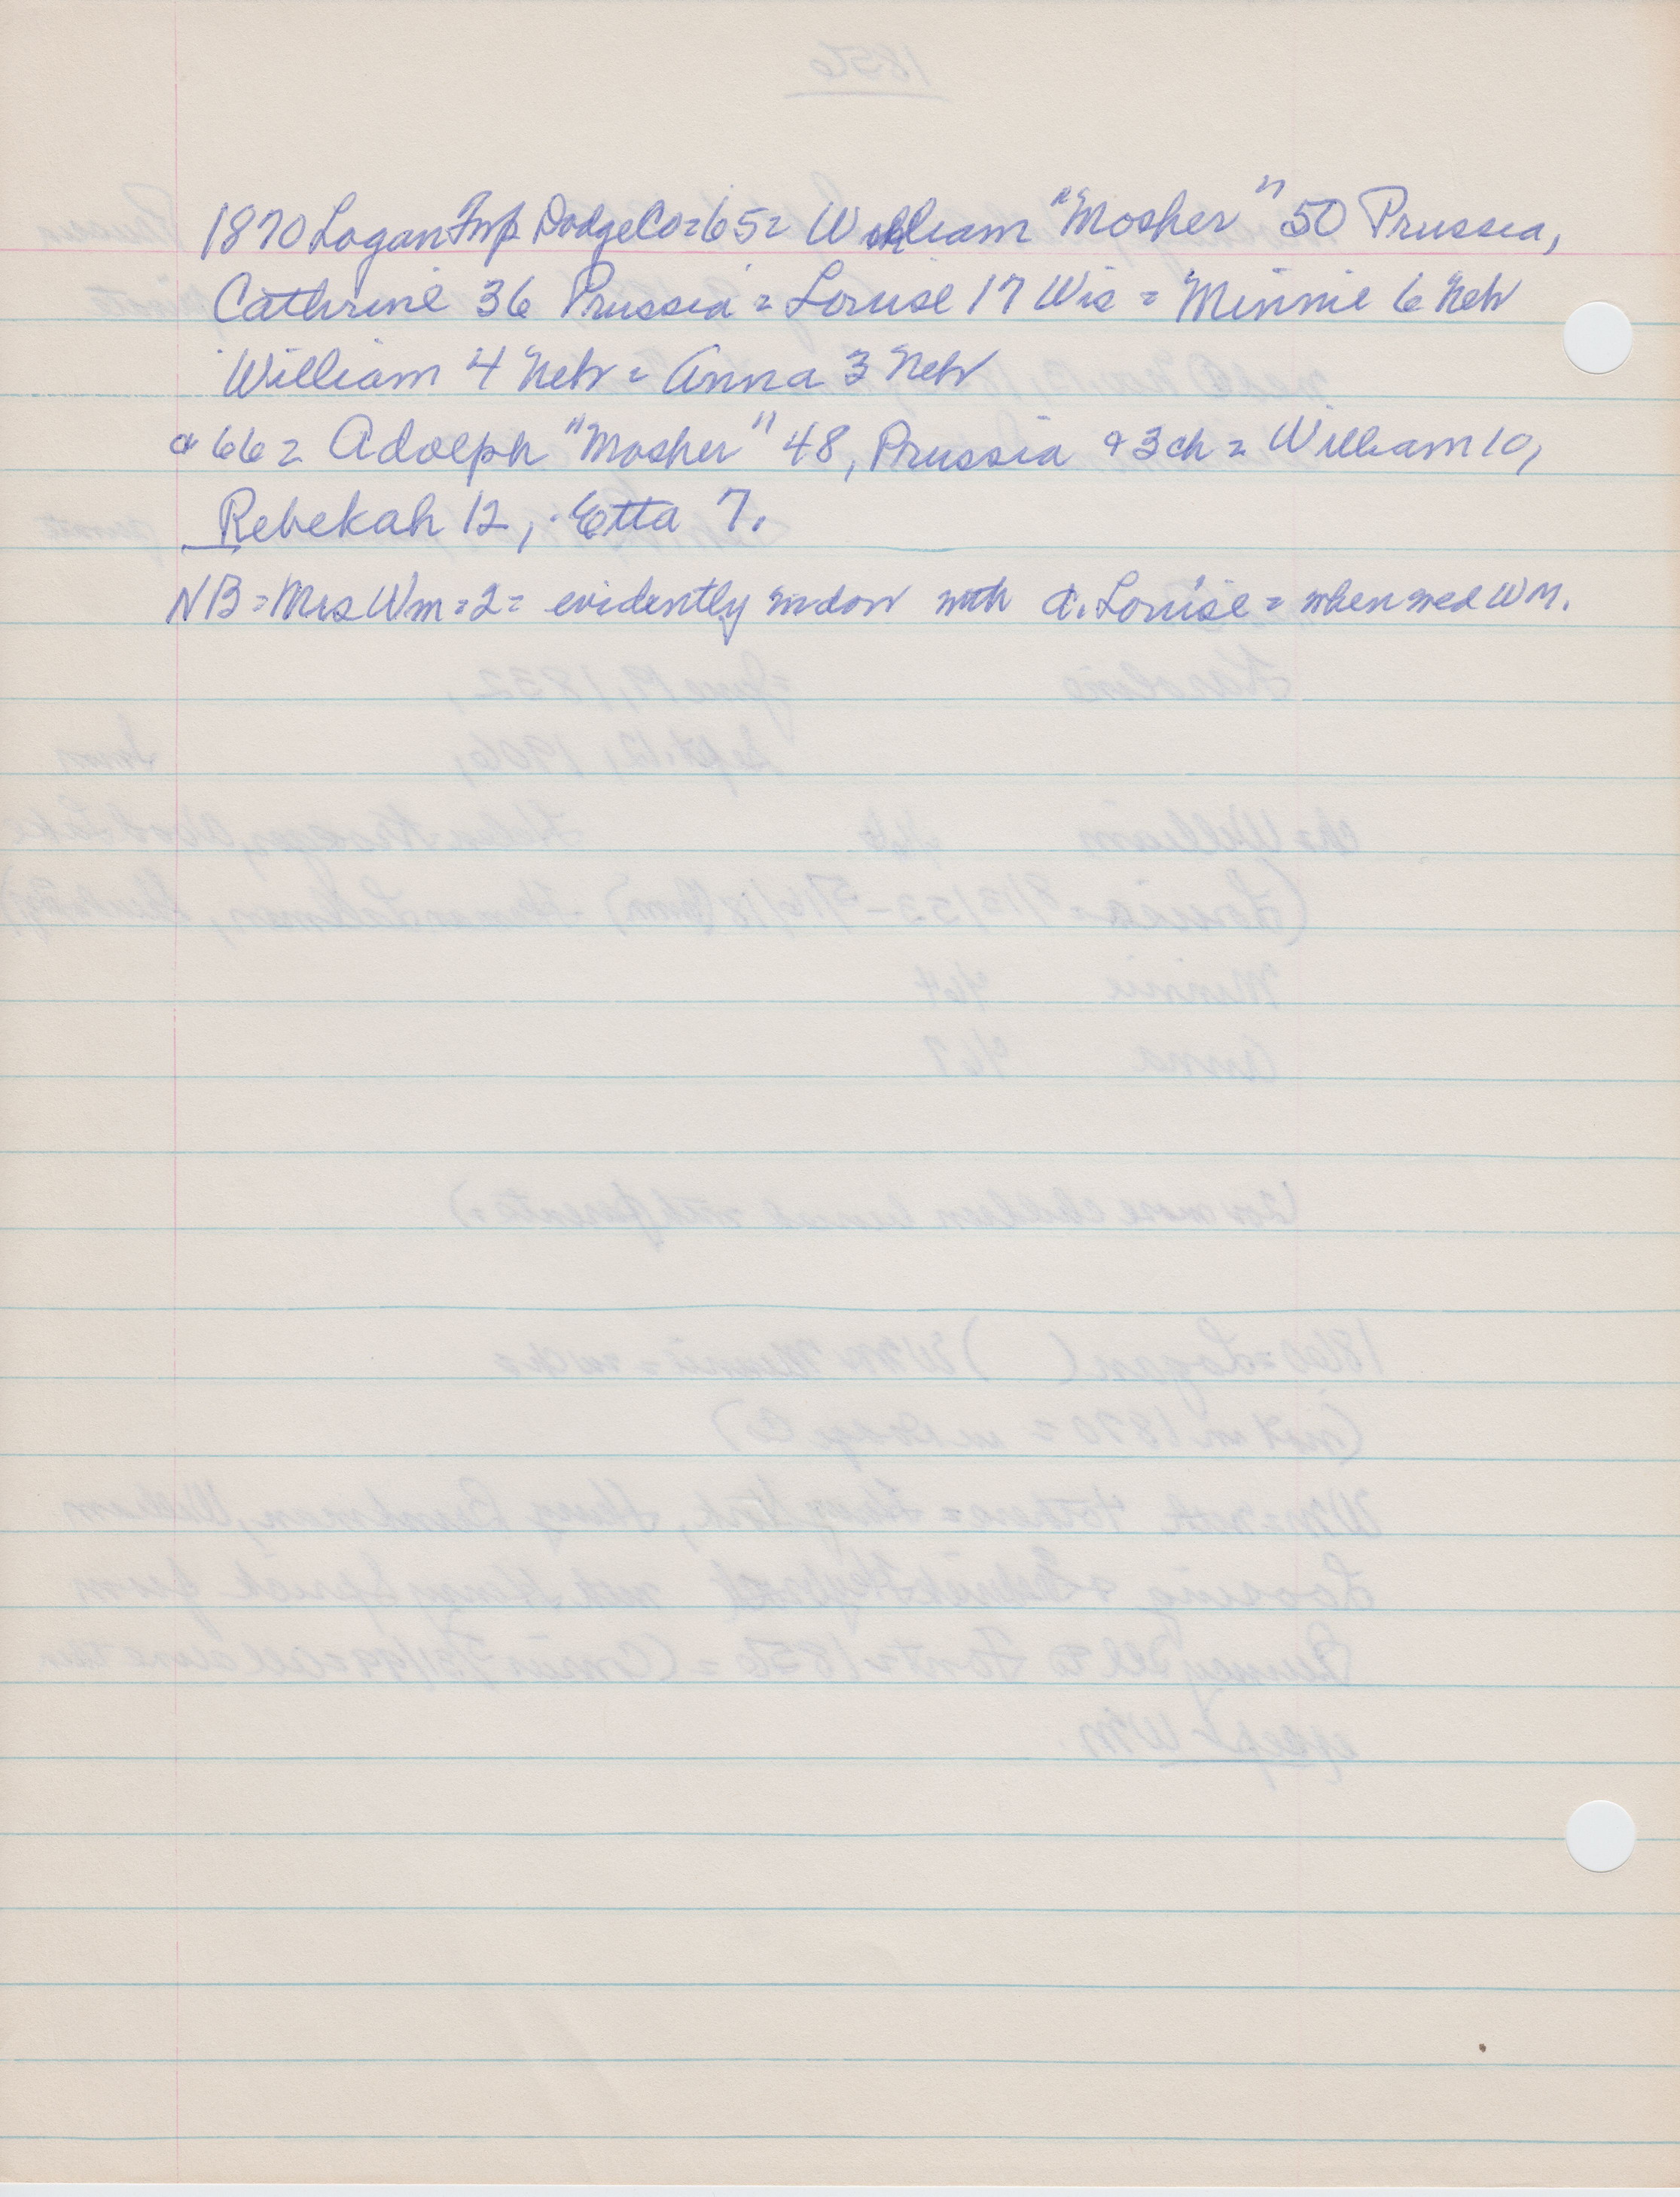 1870 Logan Twp Dodge Co = 65 = William "Mosher" 50 Prussia,
Cathrine 36 Prussia = Louise 17 Wis = Minnie 6 Neb
William 4 Neb = Anna 3 Neb
& 66 = Adolph "Mosher" 48, Prussia & 3 ch = William 10,
Rebekah 12, Etta 7.
NB = Mrs Wm = 2 = evidently widow with d. Louise = when wed WM.